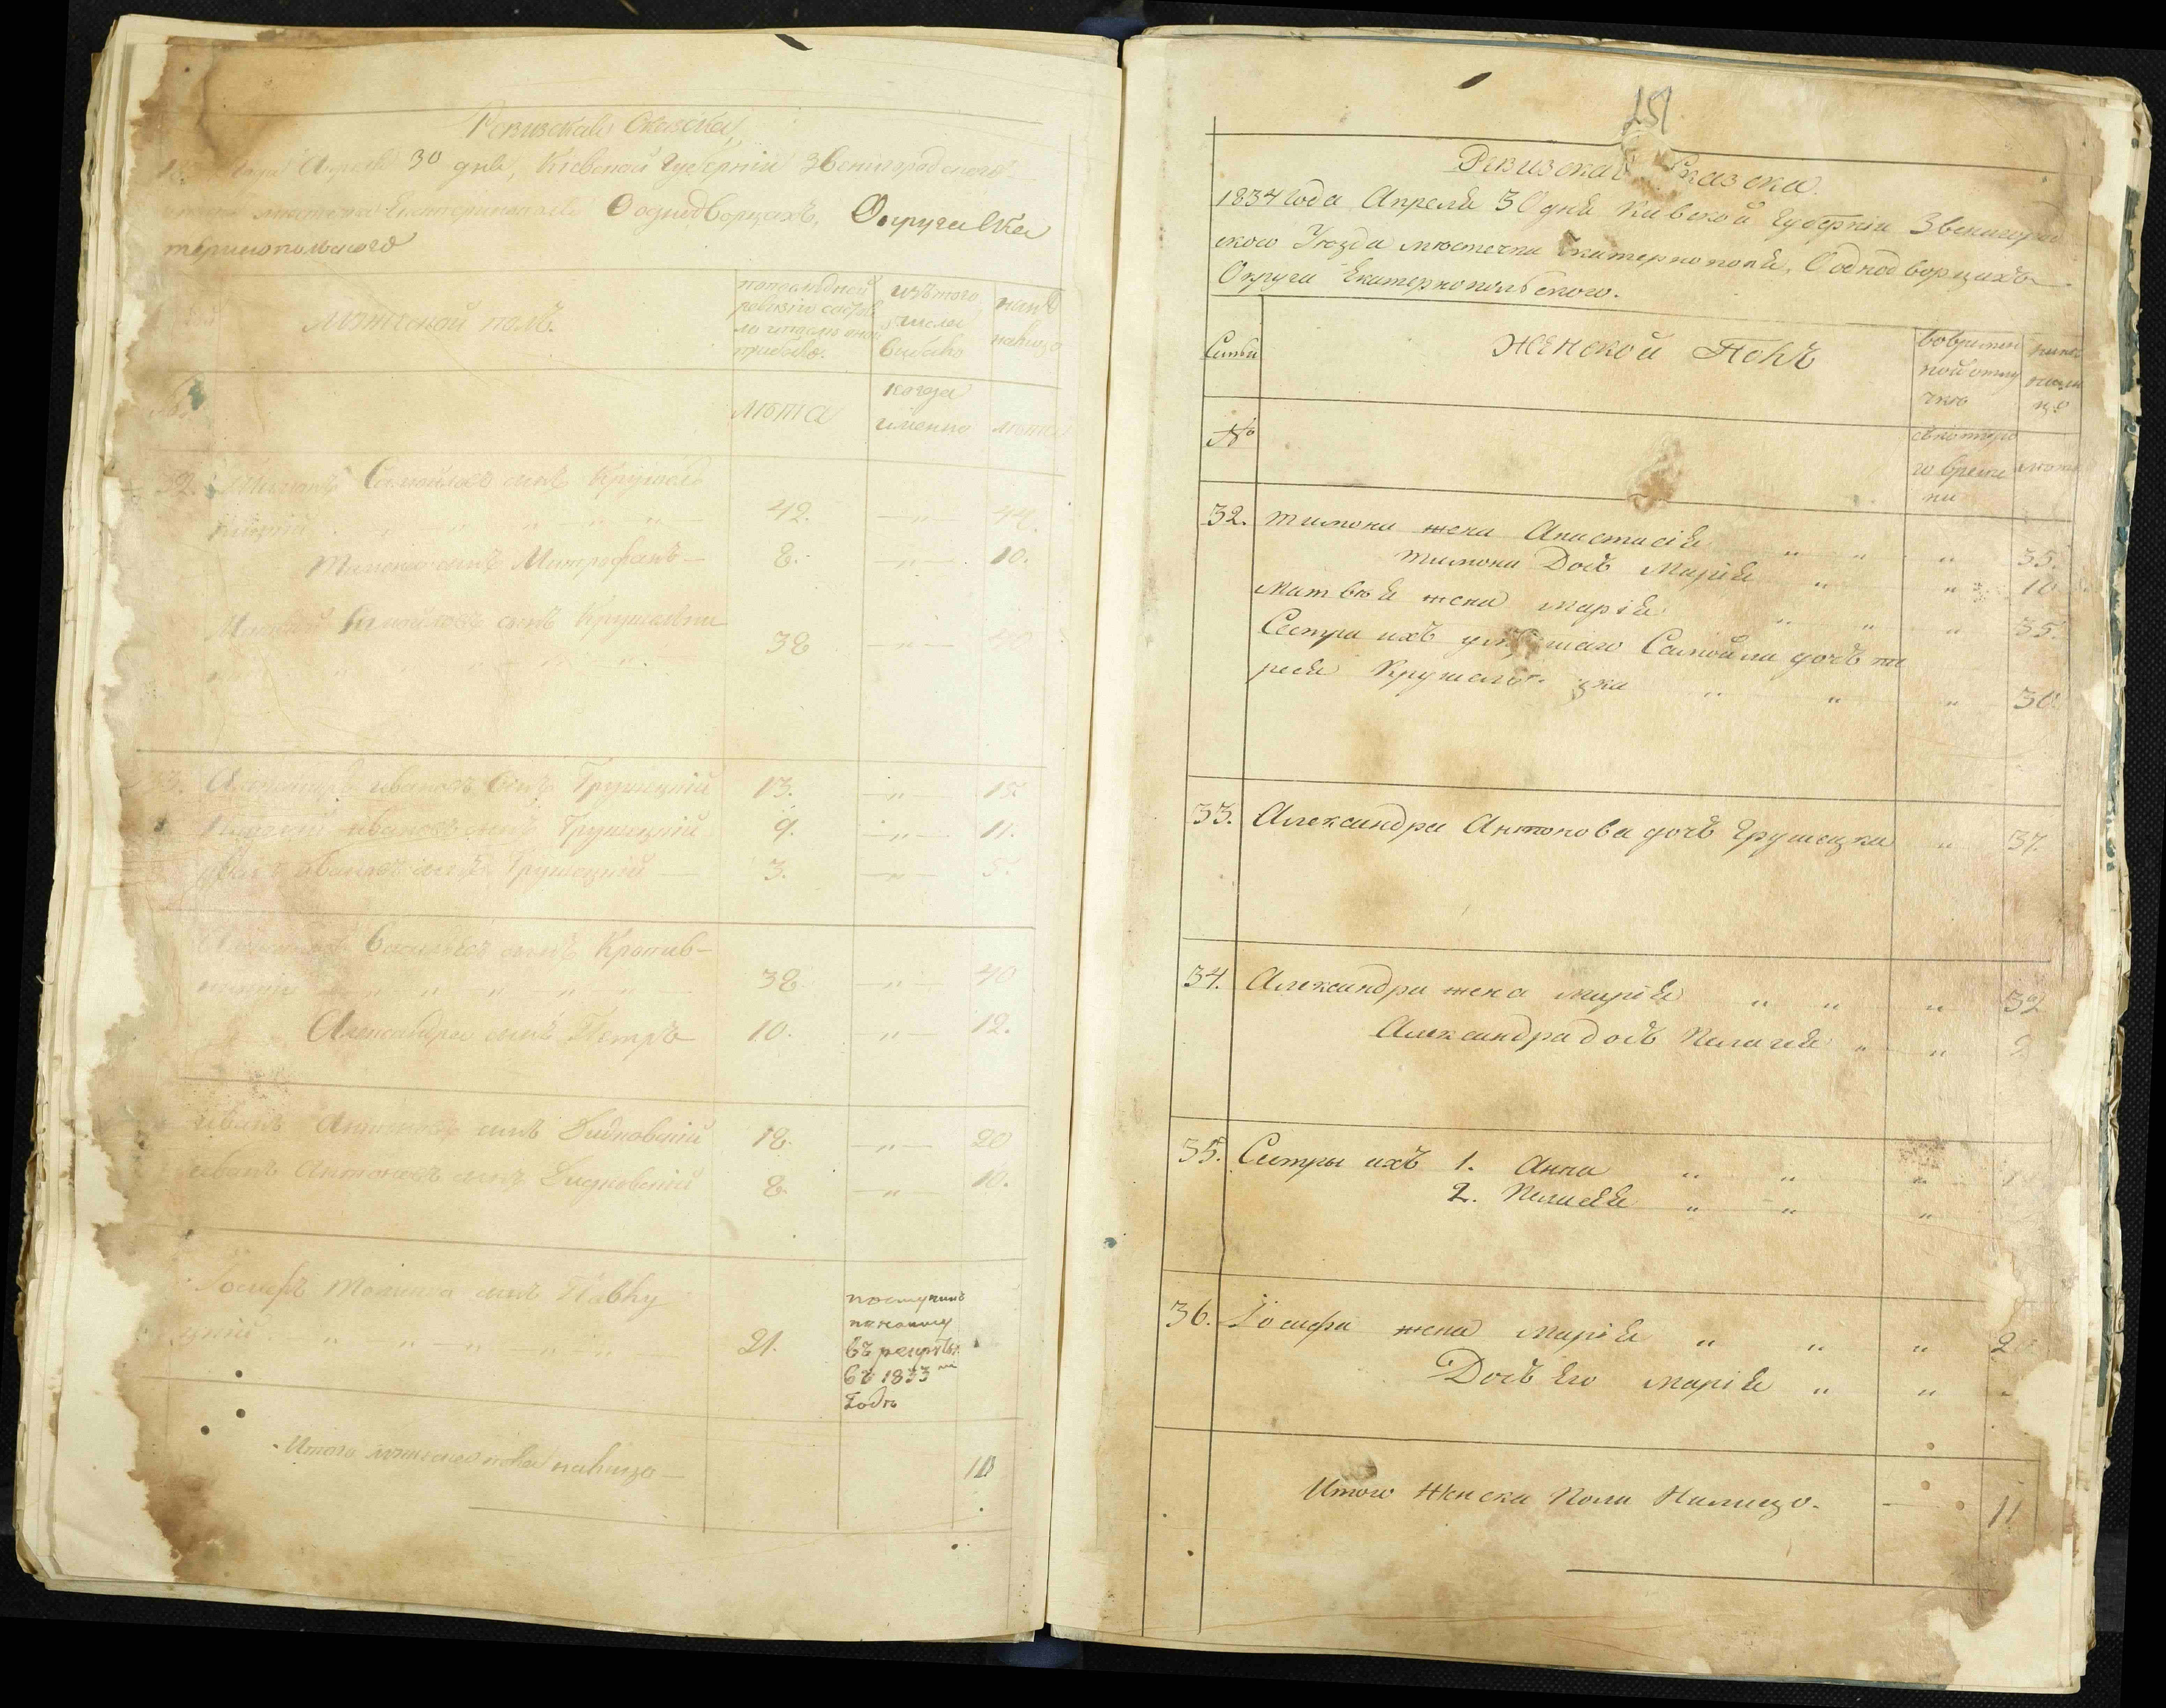 Ревизская Сказка,
Года Апреля 30 дня, Киевской Губерніи Звенигородского
местечка Екатеринополя О однодворцахъ, Округи Ека
теринопольского
Мужеской полъ.
попоследней
ревизіи состоя
ло и после оной
прибыло.
изътого
числа
выбыло
ныне
налицо
лѣта
когда
именно
лѣта
32. Тимонъ Самойловъ сынъ Крушель
ницкій 42. —„— 44.
Тимона сынъ Митрофанъ— 8. —„— 10.
Матвей Самойловъ сынъ Крушельни
38 —„— 40
33. Иванов сынъ Грушецкій 13. —„— 15.
ивановъ сынъ Грушецкій 9. —„— 11.
ивановъ сынъ Грушецкій 3. —„— 5.
Александръ Васильевъ сынъ Кропив-
ницкій 38 —„— 40
Александра сынъ Петръ 10. „— 12.
иванъ Антоновъ сынъ Видковскій 18. —„— 20
иванъ Антоновъ сынъ Видковскій 8. —„— 10.
Іосифъ сынъ Павлу
цкій 21.
поступилъ
въ рекруты
въ 1833 м
Годѣ
Итого мужеска пола налицо— 10
251
Ревизская Сказка.
1834 Года Апреля 30 дня Киевской Губерніи Звенигород
ского Уезда местечка Екатеринополя, О однодворцахъ
Округи Екатеринопольского.
Семьи
Женской Полъ
вовремен
ной отлу
чке
ныне
нали
цо
№
съкоторо
го време
ни
лѣта
32. Тимона жена Анастасія „ „ „ 35.
Тимона Дочь Марія „ „ 10
Матвея жена Марія „ „ „ 35.
Сестра ихъ умершаго Самойла дочь те
реся Крушельницка „ „ „ 30.
33. Александра Антонова дочь Грушецка „ 37.
34. Александра жена Марія „ „ „ 32
Александра дочь Пелагея „ „ 2
35. Сестры ихъ 1. Анна „ „ „
2. Пелагея „ „ „
36. Іосифа жена Марія „ „ „ 2
Дочь Его Марія „ „
Итого Женска Пола Налицо. — 11